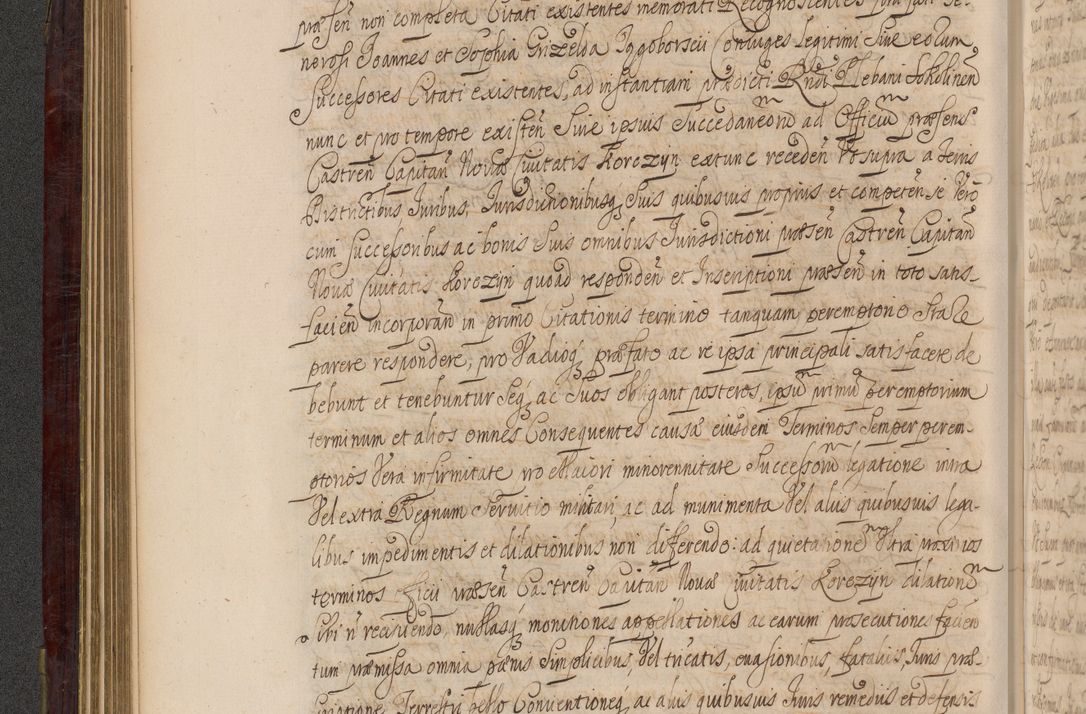 præsen̄ non completa Citati existentes memorati Recognoscentes
nerosi Joannes et Sophia Grizelda Jggoborscii Coniuges legitimi Sive eorum
Successores Citati existentes, ad instantiam prædicti Rndi Plebani Sokolinen̄
nunc et pro tempore existen̄ Sive ipsius Succedaneorū ad Officiū præsens
Castren̄ Capitan̄ Novæ Civitatis Korczyn extunc receden̄ Ut supra a Terris
Districtibus Iuribus, Iurisdictionibusq́ Suis quibusvis propriis et competen̄ se Verō
cum successoribus ac bonis Suis omnibus Iurisdictioni præsen̄ Castren̄ Capitan̄
Novæ Civitatis Korczyn quoad responden̄ et Inscriptioni præsen̄ in toto satis-
facien̄ incorporan̄ in primo Citationis termino tanquam peremptorio Stare
parere respondere, pro Vadioq́ præfato ac re ipsa principali satisfacere de
bebunt et tenebuntur Seq́ ac Suos obligant posteros, ipsū primū peremptorium
terminum et alios omnes Consequentes causæ eiusdem Terminos Semper perem-
ptorios Vera infirmitate pro Maiori minorennitate Successorū legatione intra
Vel extra Regnum Servitio militari, ac ad munimenta Vel aliis quibusvis lega-
libus impedimentis et dilationibus non differendo: ad quietatione Ultra
terminos præsen̄ Castren̄ Capitan̄ Novæ Civitatis Korczyn dilation
ibi n̄ recipiendo, nullasq́ motiones appellationes ac earum prosecutiones facien
tum præmissa omnia pænis Simplicibus, Vel tricatis, evasionibus, fataliis, Iuris præ-
Terrestri bello Conventioneq́ ac aliis quibusvis Iuris remediis et defensis